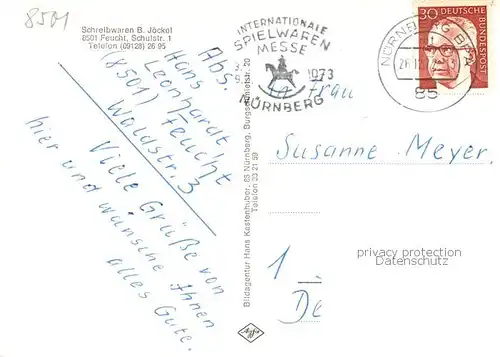 8501
Schreibwaren B. Jäckel
8501 Feucht, Schulstr. 1
Telefon (09128) 26 95
Abs.
Hans
Leonhardt
(8501) Feucht
Waldstr. 3
Viele Grüße von
hier und wünsche Ihnen
alles Gute.
Bildagentur Hans Kastenhuber, 85 Nürnberg, Burgschmietstr. 20
Telefon 33 21 59
Agfa
INTERNATIONALE
SPIELWAREN
MESSE
1973
NÜRNBERG
NÜRNBERG BPA
85
30 DEUTSCHE
BUNDESPOST
Frau
Susanne Meyer
1
De
privacy protection
Datenschutz